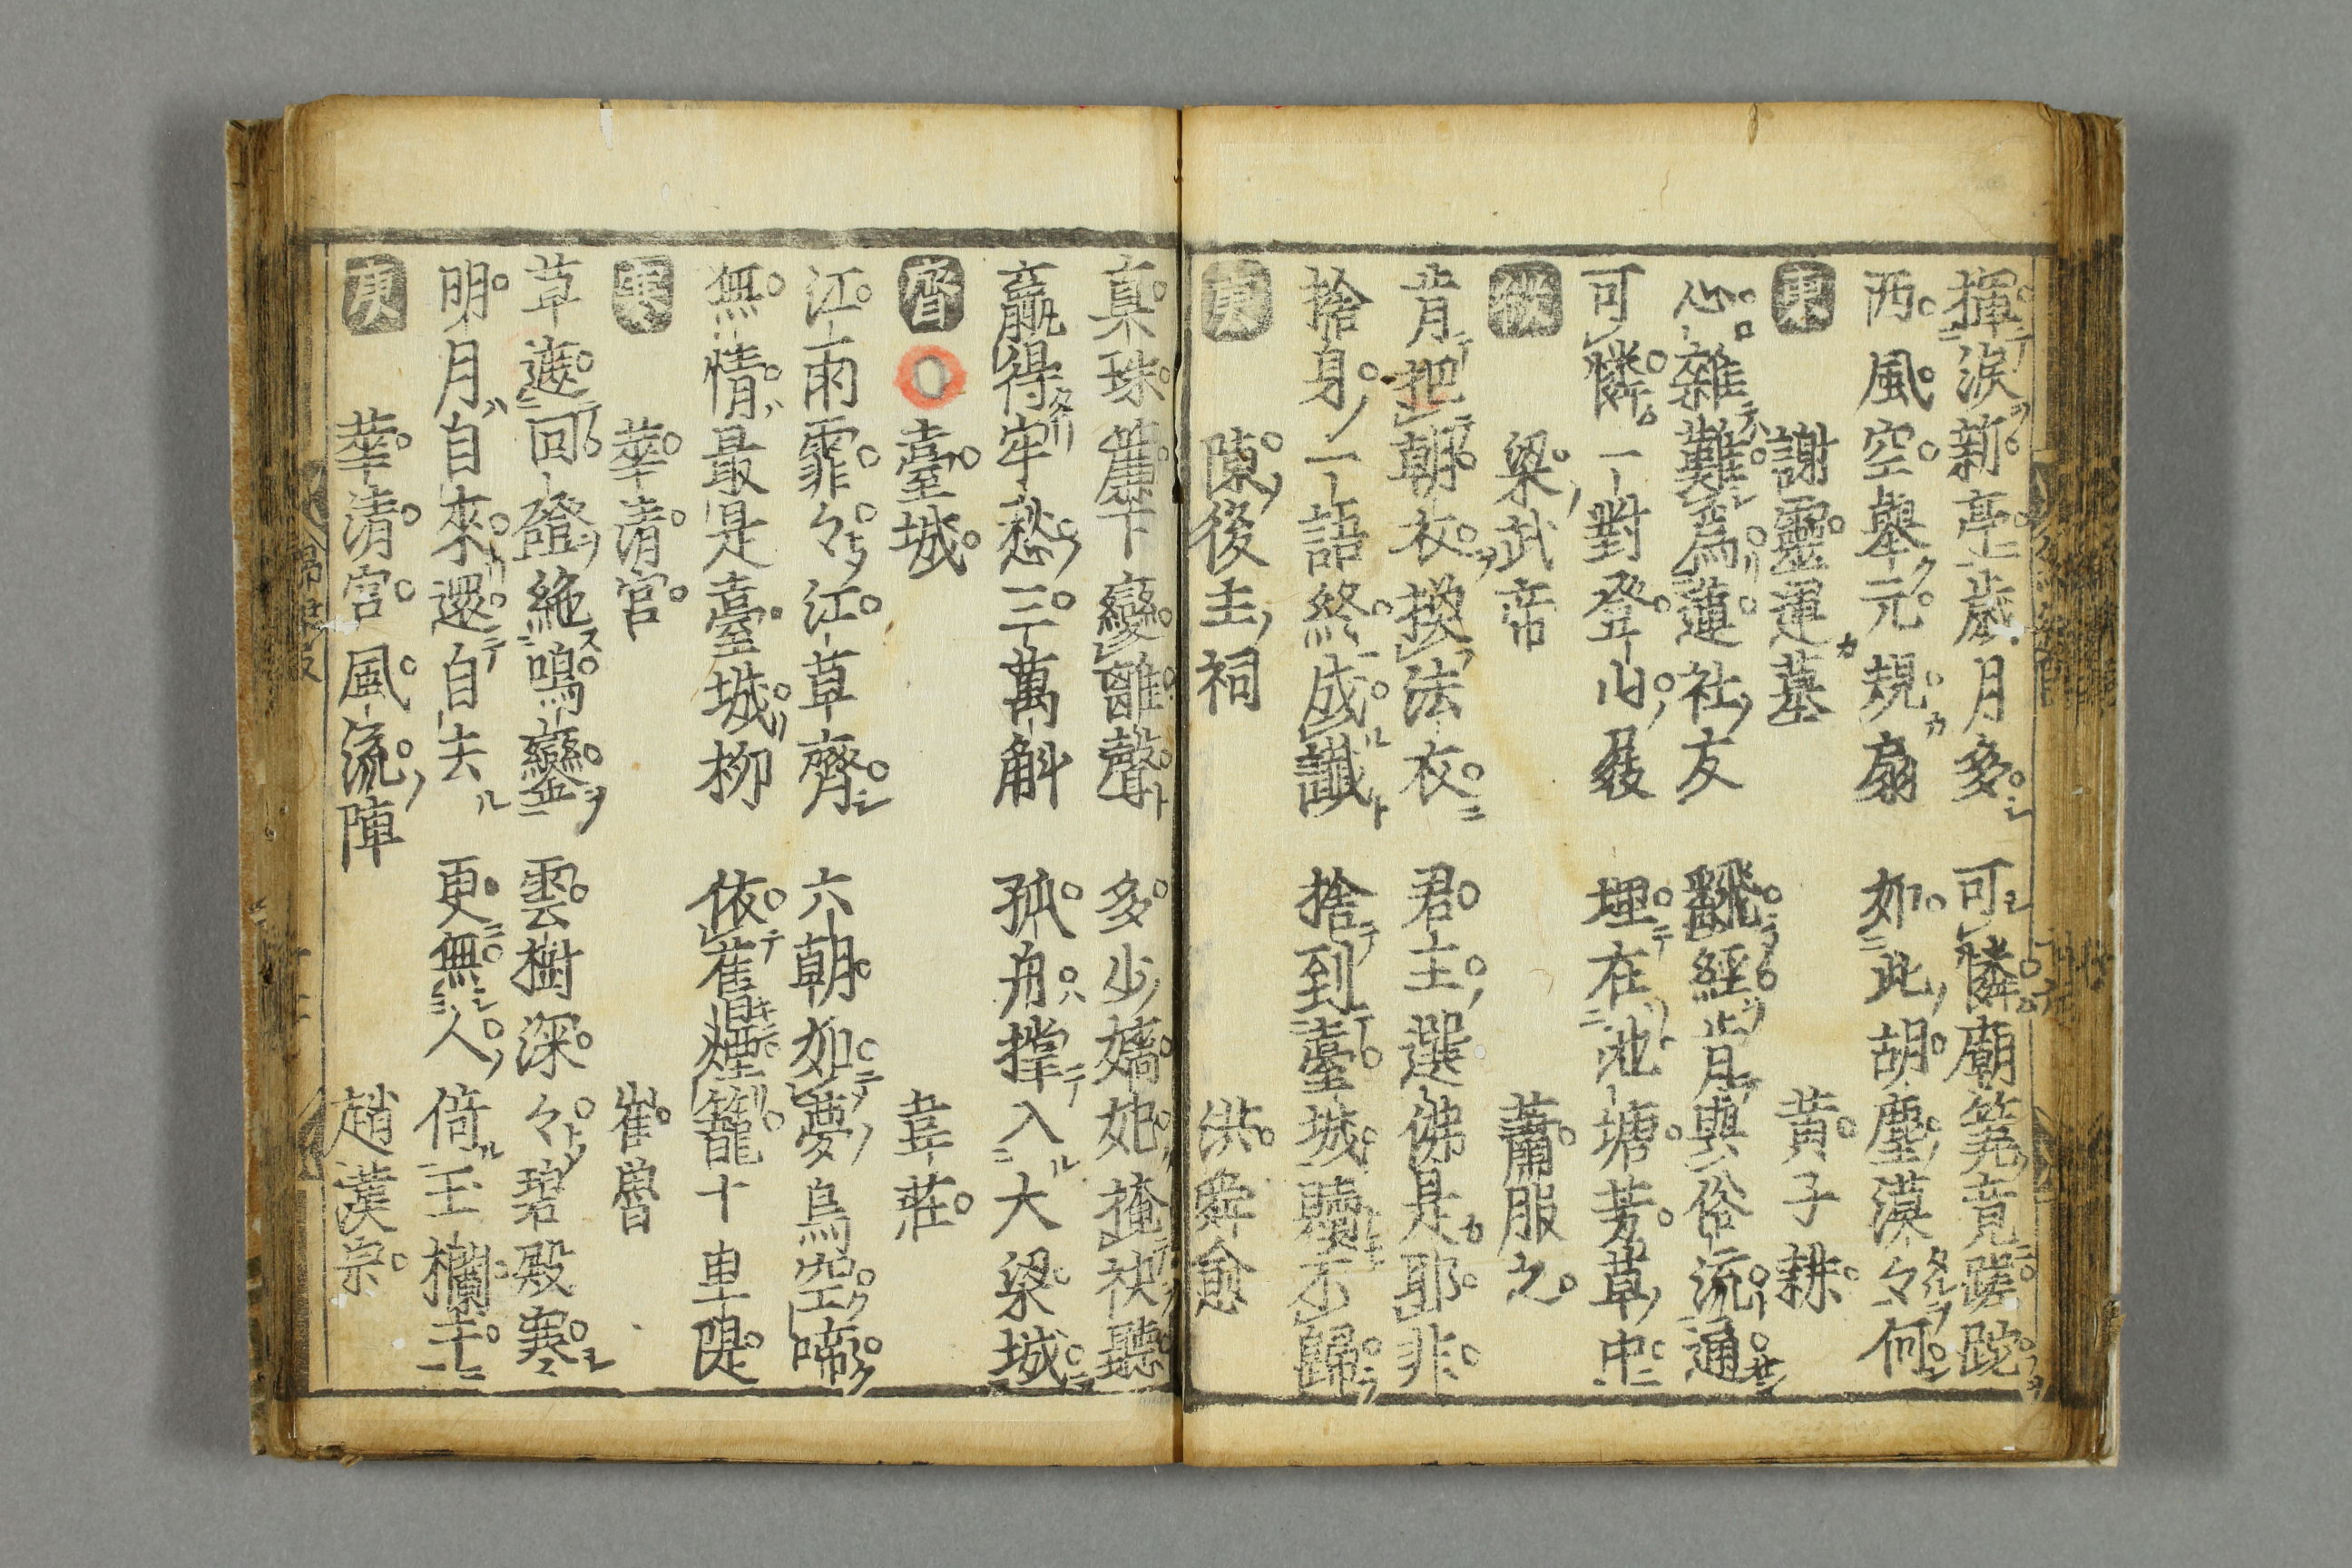 揮淚新亭歲月多 可憐廟筭竟蹉跎
西風空舉元規扇 如此胡塵漠々何
東 謝靈運墓 黃子耕
心雜難爲蓮社友 飜經肯與俗流通
可憐一對登山屐 埋在池塘芳草中
微 梁武帝 蕭服之
肯把朝衣換法衣 君主選佛是耶非
捨身一語終成讖 捨到臺城贖不歸
庚 陳後主祠 洪舜愈
真珠簾下變雛聲 多少嬌妃掩袂聽
贏得牢愁三萬斛 孤舟撑入大梁城
齊 臺城 韋莊
江雨霏々江草齊 六朝如夢鳥空啼
無情最是臺城柳 依舊煙籠十里隄
寒 華清宮 崔魯
草遮回磴絶鳴鑾 雲樹深々碧殿寒
明月自來還自去 更無人倚玉欄干
庚 華清宮風流陣 趙漢宗